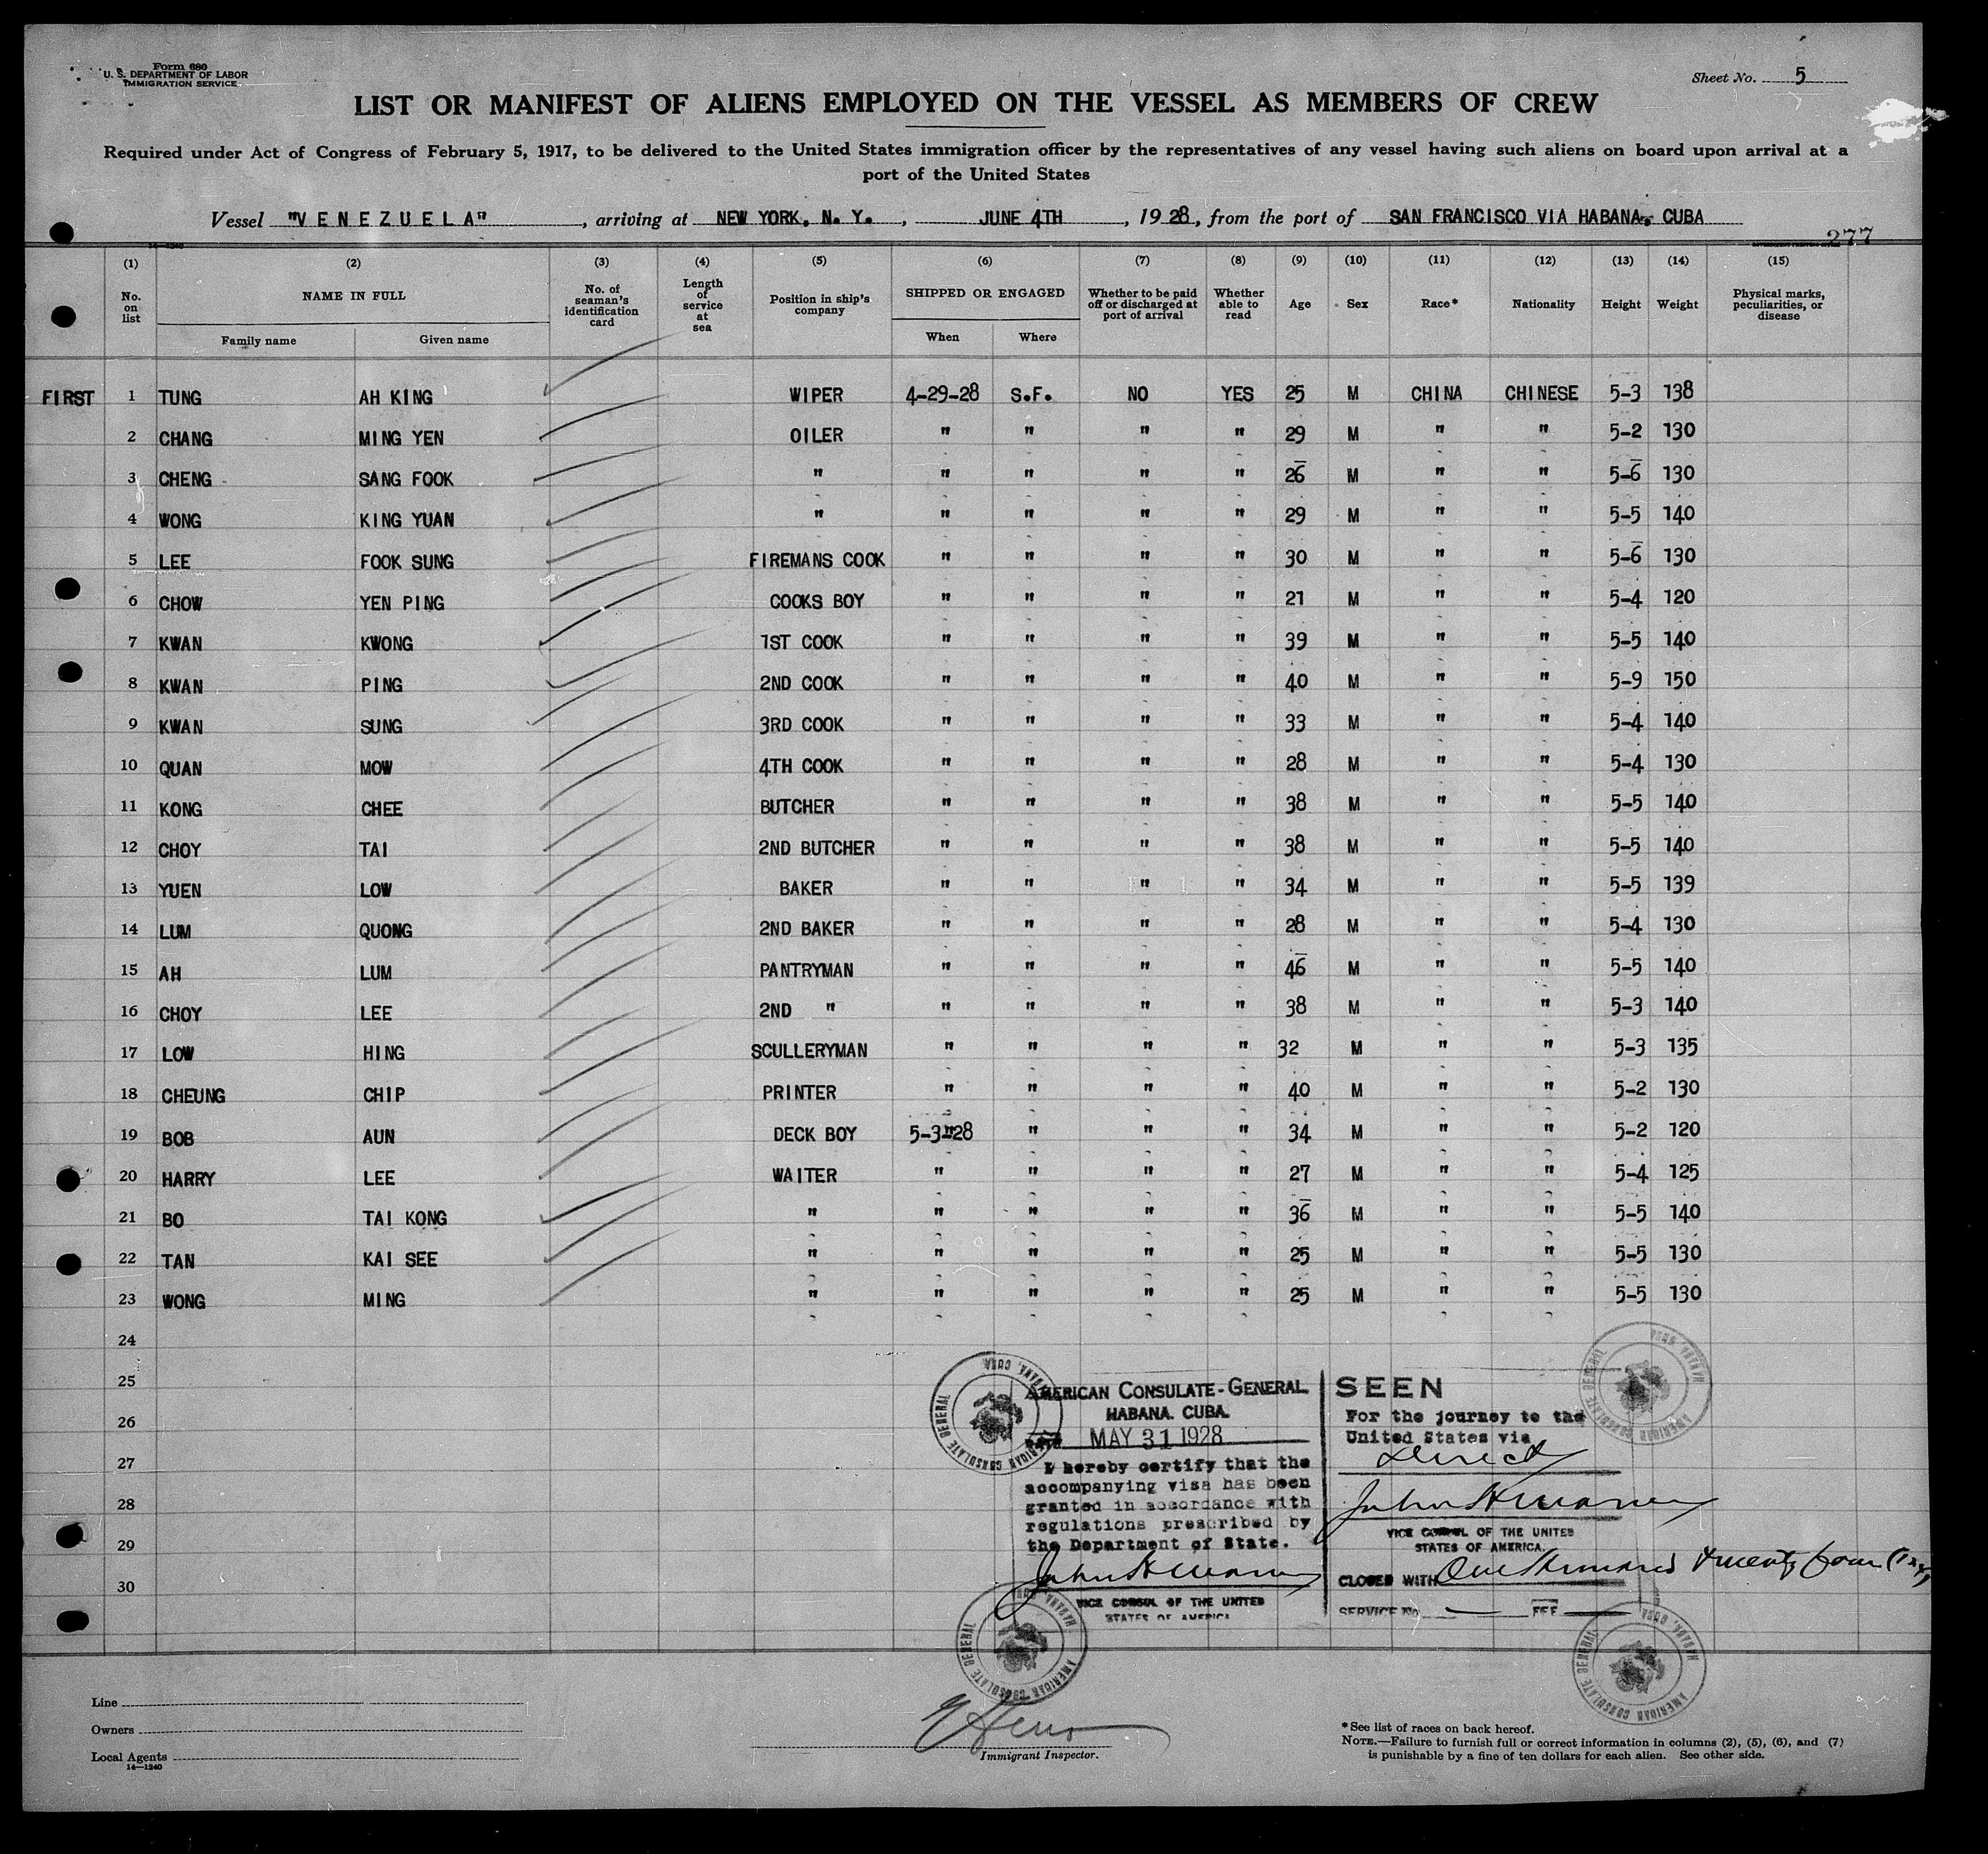 Form 680
U. S. DEPARTMENT OF LABOR
IMMIGRATION SERVICE
Sheet No. 5
LIST OR MANIFEST OF ALIENS EMPLOYED ON THE VESSEL AS MEMBERS OF CREW
Required under Act of Congress of February 5, 1917, to be delivered to the United States immigration officer by the representatives of any vessel having such aliens on board upon arrival at a
port of the United States
Vessel "VENEZUELA", arriving at NEW YORK, N. Y., JUNE 4TH, 1928, from the port of SAN FRANCISCO VIA HABANA, CUBA
14—1240
277
(1) (2) (3) (4) (5) (6) (7) (8) (9) (10) (11) (12) (13) (14) (15)
No. on list NAME IN FULL No. of seaman's identification card Length of service at sea Position in ship's company SHIPPED OR ENGAGED Whether to be paid off or discharged at port of arrival Whether able to read Age Sex Race* Nationality Height Weight Physical marks, peculiarities, or disease
Family name Given name When Where
FIRST 1 TUNG AH KING WIPER 4-29-28 S.F. NO YES 25 M CHINA CHINESE 5-3 138
2 CHANG MING YEN OILER " " " " 29 M " " 5-2 130
3 CHENG SANG FOOK " " " " " 26 M " " 5-6 130
4 WONG KING YUAN " " " " " 29 M " " 5-5 140
5 LEE FOOK SUNG FIREMANS COOK " " " " 30 M " " 5-6 130
6 CHOW YEN PING COOKS BOY " " " " 21 M " " 5-4 120
7 KWAN KWONG 1ST COOK " " " " 39 M " " 5-5 140
8 KWAN PING 2ND COOK " " " " 40 M " " 5-9 150
9 KWAN SUNG 3RD COOK " " " " 33 M " " 5-4 140
10 QUAN MOW 4TH COOK " " " " 28 M " " 5-4 130
11 KONG CHEE BUTCHER " " " " 38 M " " 5-5 140
12 CHOY TAI 2ND BUTCHER " " " " 38 M " " 5-5 140
13 YUEN LOW BAKER " " " " 34 M " " 5-5 139
14 LUM QUONG 2ND BAKER " " " " 28 M " " 5-4 130
15 AH LUM PANTRYMAN " " " " 46 M " " 5-5 140
16 CHOY LEE 2ND " " " " " 38 M " " 5-3 140
17 LOW HING SCULLERYMAN " " " " 32 M " " 5-3 135
18 CHEUNG CHIP PRINTER " " " " 40 M " " 5-2 130
19 BOB AUN DECK BOY 5-3-28 " " " 34 M " " 5-2 120
20 HARRY LEE WAITER " " " " 27 M " " 5-4 125
21 BO TAI KONG " " " " " 36 M " " 5-5 140
22 TAN KAI SEE " " " " " 25 M " " 5-5 130
23 WONG MING " " " " " 25 M " " 5-5 130
24
25
26
27
28
29
30
AMERICAN CONSULATE GENERAL HABANA, CUBA
AMERICAN CONSULATE-GENERAL
HABANA. CUBA.
MAY 31 1928
I hereby certify that the
accompanying visa has been
granted in accordance with
regulations prescribed by
the Department of State.
VICE CONSUL OF THE UNITED
STATES OF AMERICA
AMERICAN CONSULATE GENERAL HABANA, CUBA
SEEN
For the journey to the
United States via
Direct
VICE CONSUL OF THE UNITED
STATES OF AMERICA.
CLOSED WITH One Hundred twenty four
SERVICE No. FEE
AMERICAN CONSULATE GENERAL HABANA, CUBA
AMERICAN CONSULATE GENERAL HABANA, CUBA
Line
Owners
Local Agents
14—1240
Immigrant Inspector.
*See list of races on back hereof.
NOTE.—Failure to furnish full or correct information in columns (2), (5), (6), and (7)
is punishable by a fine of ten dollars for each alien. See other side.